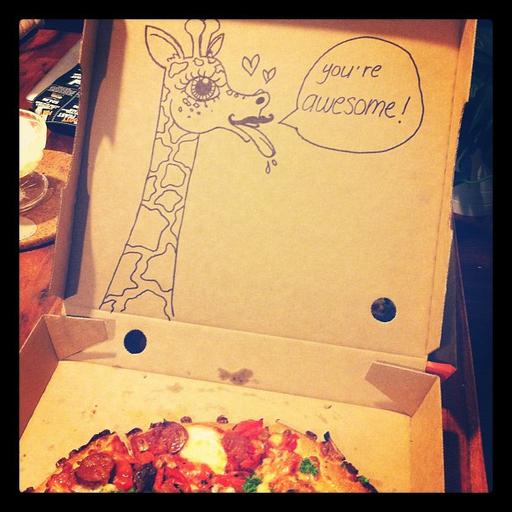 you're
awesome!